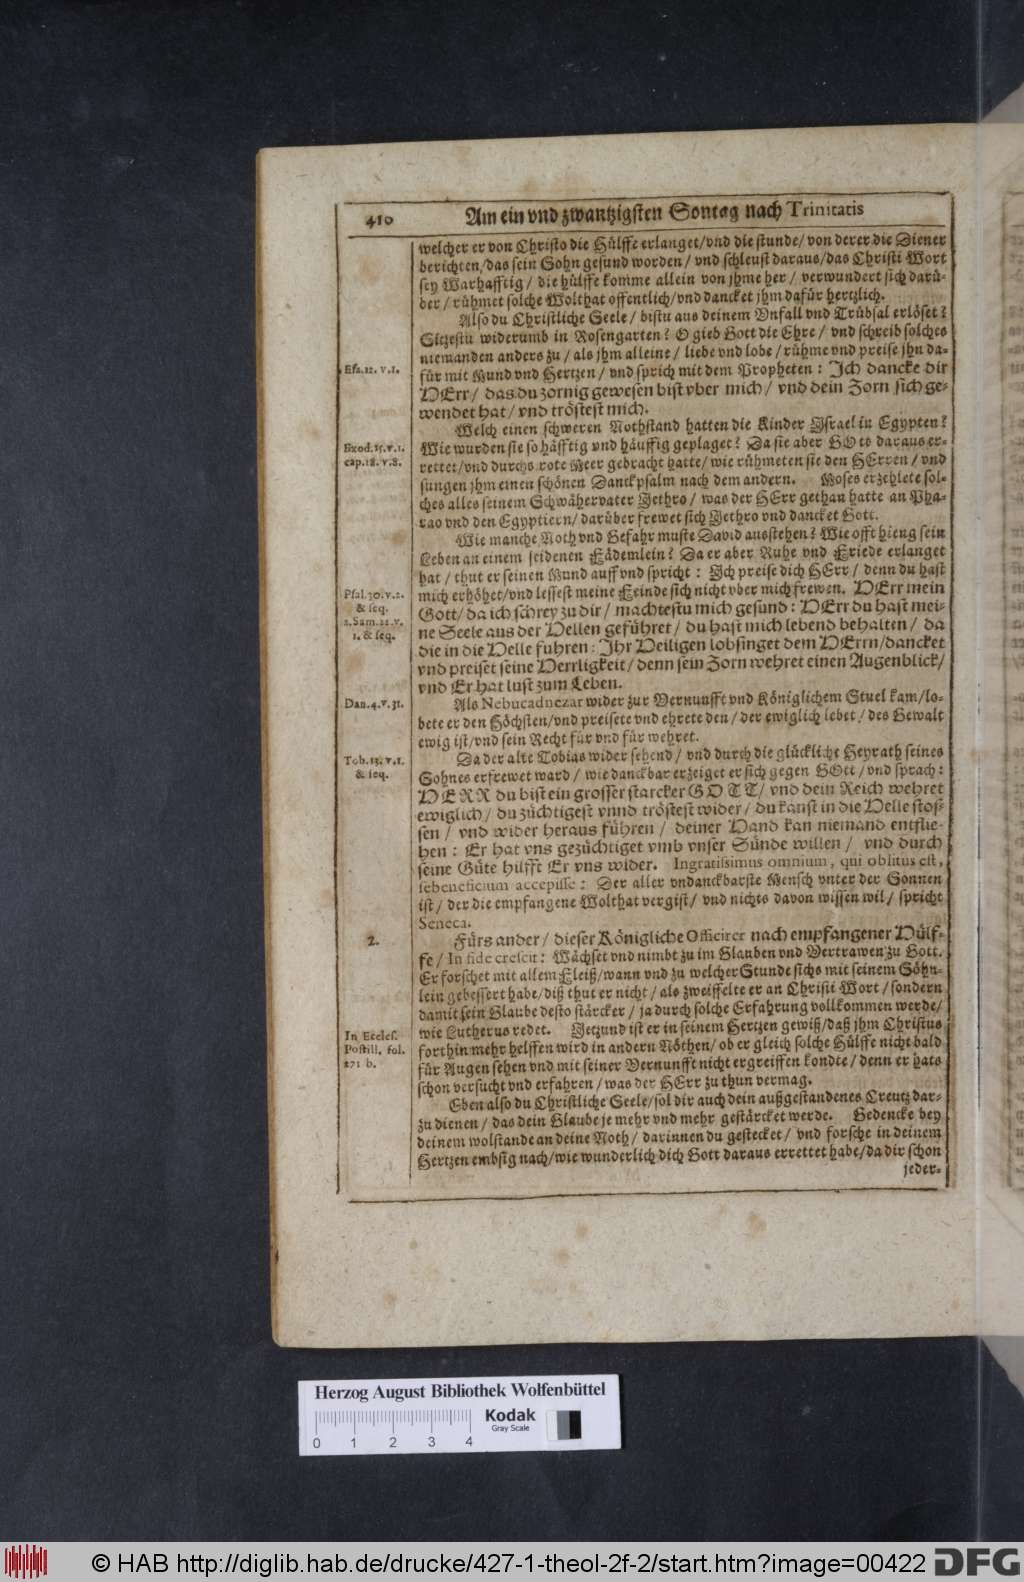 410 Am ein vnd zwantzigsten Sontag nach Trinitatis
welcher er von Christo die Hülffe erlanget/vnd die stunde/von derer die Diener
berichten/das sein Sohn gesund worden/ vnd schleust daraus/das Christi Wort
sey Warhafftig/ die hülffe komme allein von jhme her/ verwundert sich darü-
ber/ rühmet solche Wolthat offentlich/vnd dancket jhm dafür hertzlich.
Also du Christliche Seele/ bistu aus deinem Vnfall vnd Trübsal erlöset?
Sitzestu widerumb in Rosengarten? O gieb Gott die Ehre/ vnd schreib solches
niemanden anders zu/ als jhm alleine/ liebe vnd lobe/ rühme vnd preise jhn da-
Esa.12. v.1.
für mit Mund vnd Hertzen/ vnd sprich mit dem Propheten: Ich dancke dir
HErr/ das du zornig gewesen bist vber mich/ vnd dein Zorn sich ge-
wendet hat/ vnd tröstest mich.
Welch einen schweren Nothstand hatten die Kinder Israel in Egypten?
Exod.15.v.1.
Wie wurden sie so häfftig vnd häuffig geplaget? Da sie aber GOtt daraus er-
cap.18.v.8.
rettet/vnd durchs rote Meer gebracht hatte/ wie rühmeten sie den HErren/ vnd
sungen jhm einen schönen Danckpsalm nach dem andern. Moses erzehlete sol-
ches alles seinem Schwähervater Jethro/ was der HErr gethan hatte an Pha-
rao vnd den Egyptiern/ darüber frewet sich Jethro vnd dancket Gott.
Wie manche Noth vnd Gefahr muste David ausstehen? Wie offt hieng sein
Leben an einem seidenen Fädemlein? Da er aber Ruhe vnd Friede erlanget
hat/ thut er seinen Mund auff vnd spricht: Ich preise dich HErr/ denn du hast
Psal.30.v.2.
mich erhöhet/vnd lessest meine Feinde sich nicht vber mich frewen. HErr mein
& seq.
Gott/ da ich schrey zu dir/ machtestu mich gesund: HErr du hast mei-
2.Sam.22.v.
ne Seele aus der Hellen geführet/ du hast mich lebend behalten/ da
1.& seq.
die in die Helle fuhren: Ihr Heiligen lobsinget dem HErrn/dancket
vnd preiset seine Herrligkeit/ denn sein Zorn wehret einen Augenblick/
vnd Er hat lust zum Leben.
Dan.4.v.31.
Als Nebucadnezar wider zur Vernunfft vnd Königlichem Stuel kam/lo-
bete er den Höchsten/vnd preisete vnd ehrete den/ der ewiglich lebet/ des Gewalt
ewig ist/vnd sein Recht für vnd für wehret.
Tob.13.v.1.
Da der alte Tobias wider sehend/ vnd durch die glückliche Heyrath seines
& seq.
Sohnes erfrewet ward/ wie danckbar erzeiget er sich gegen GOtt/vnd sprach:
HERR du bist ein grosser starcker GOTT/ vnd dein Reich wehret
ewiglich/ du züchtigest vnnd tröstest wider/ du kanst in die Helle stos-
sen/ vnd wider heraus führen/ deiner Hand kan niemand entflie-
hen: Er hat vns gezüchtiget vmb vnser Sünde willen/ vnd durch
seine Güte hilfft Er vns wider. Ingratissimus omnium, qui oblitus est,
se beneficium accepisse: Der aller vndanckbarste Mensch vnter der Sonnen
ist/ der die empfangene Wolthat vergist/ vnd nichts davon wissen wil/ spricht
Seneca.
2.
Fürs ander/ dieser Königliche Officirer nach empfangener Hülf-
fe/ In fide crescit: Wächset vnd nimbt zu im Glauben vnd Vertrawen zu Gott.
Er forschet mit allem Fleiß/wann vnd zu welcher Stunde sichs mit seinem Söhn-
lein gebessert habe/diß thut er nicht/ als zweiffelte er an Christi Wort/sondern
damit sein Glaube desto stärcker/ ja durch solche Erfahrung vollkommen werde/
In Eccles.
wie Lutherus redet. Jetzund ist er in seinem Hertzen gewiß/daß jhm Christus
Postill. fol.
forthin mehr helffen wird in andern Nöthen/ ob er gleich solche Hülffe nicht bald
271 b.
für Augen sehen vnd mit seiner Vernunfft nicht ergreiffen kondte/ denn er hats
schon versucht vnd erfahren/ was der HErr zu thun vermag.
Eben also du Christliche Seele/sol dir auch dein außgestandenes Creutz dar-
zu dienen/ das dein Glaube je mehr vnd mehr gestärcket werde. Gedencke bey
deinem wolstande an deine Noth/ darinnen du gestecket/ vnd forsche in deinem
Hertzen embsig nach/wie wunderlich dich Gott daraus errettet habe/da dir schon
jeder-
Herzog August Bibliothek Wolfenbüttel
Kodak
Gray Scale
0 1 2 3 4
© HAB http://diglib.hab.de/drucke/427-1-theol-2f-2/start.htm?image=00422 DFG